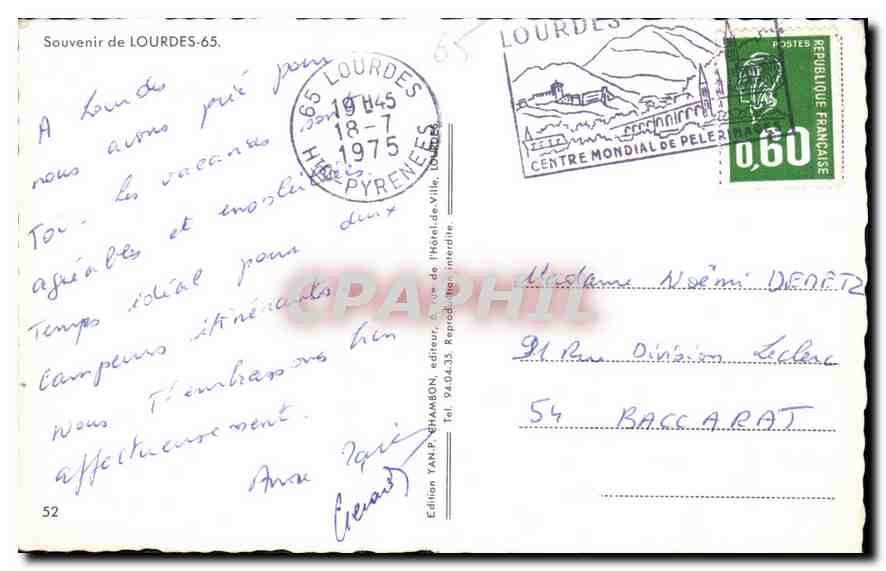 Souvenir de LOURDES-65.
A Lourdes
nous avons prié pour
Toi. Les vacances sont
agréables et ensoleillées.
Temps idéal pour deux
campeurs itinérants
Nous T'embrassons bien
affectueusement.
Anne
Gérard
52
65 LOURDES
19H45
18-7
1975
HTES-PYRENEES
65
LOURDES
CENTRE MONDIAL DE PELERINAGES
POSTES
REPUBLIQUE FRANÇAISE
0,60
Edition YAN-P. CHAMBON, editeur, 6, rue de l'Hôtel-de-Ville, LOURDES
Tel. 94.04.35 Reproduction interdite.
CPAPHIL
Madame Noëmi DERETZ
91 Rue Division Leclerc
54 BACCARAT